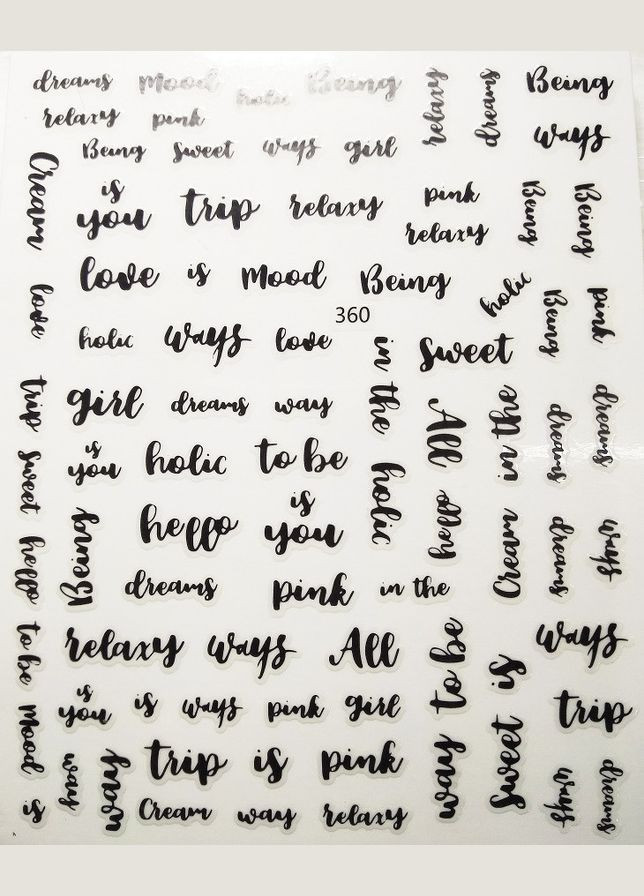 dreams mood holic Being relaxy dreams Being
relaxy pink ways
Being sweet ways girl
Cream is you trip relaxy pink relaxy Being Being
love is mood Being holic Being pink
love holic ways love 360 sweet
trip girl dreams way in the All in the dreams dreams
sweet is you holic to be holic hello
hello Being hello is you Cream dreams ways
dreams pink in the
to be relaxy ways All way to be sweet is ways
mood is you is ways pink girl trip
way way trip is pink ways dreams
is Cream way relaxy